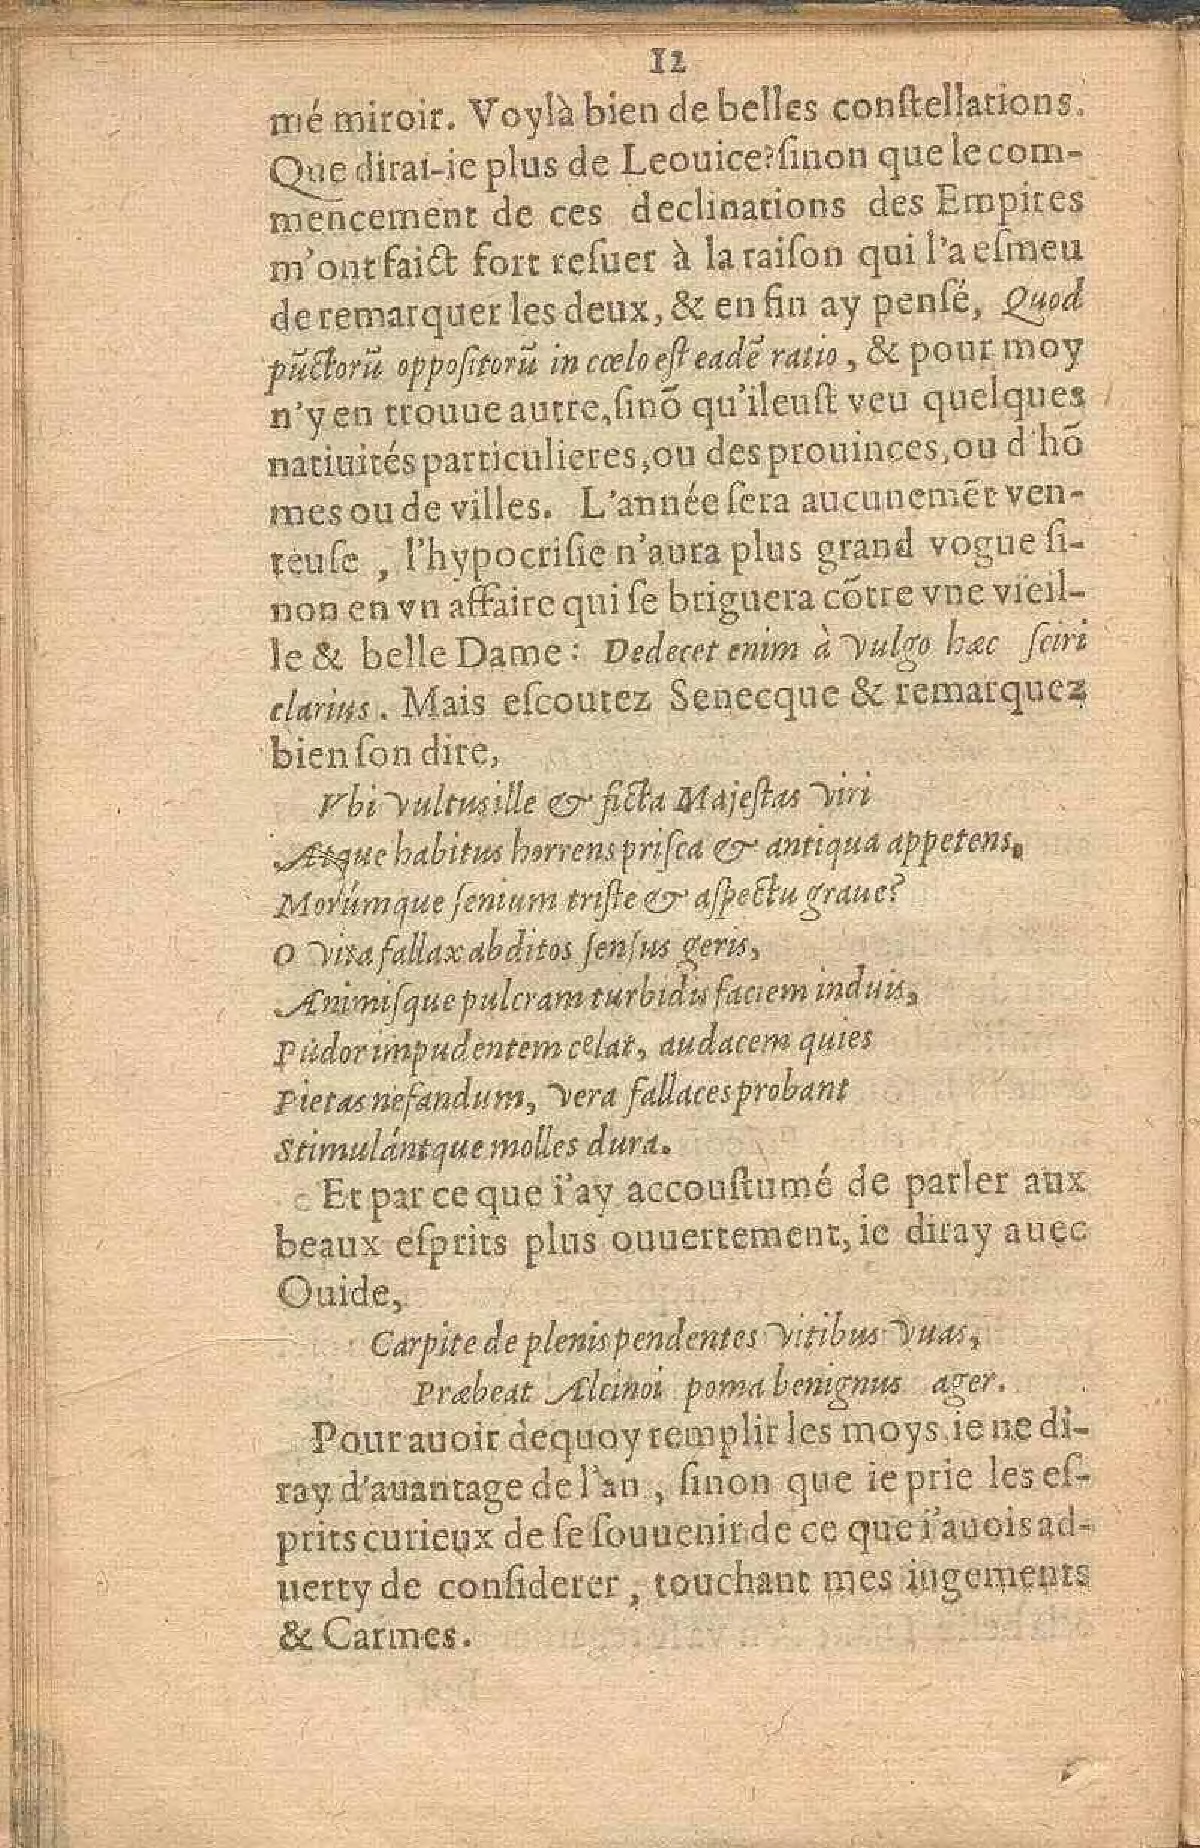 12
mé miroir. Voylà bien de belles conſtellations.
Que dirai-ie plus de Leouice? ſinon que le com-
mencement de ces declinations des Empires
m'ont faict fort reſuer à la raiſon qui l'a eſmeu
de remarquer les deux, & en fin ay penſé, Quod
pũctorũ oppoſitorũ in cœlo eſt eadẽ ratio, & pour moy
n'y en trouue autre, ſinõ qu'il euſt veu quelques
natiuités particulieres, ou des prouinces, ou d'hõ
mes ou de villes. L'année ſera aucunemẽt ven-
teuſe, l'hypocriſie n'aura plus grand vogue ſi-
non en vn affaire qui ſe briguera cõtre vne vieil-
le & belle Dame: Dedecet enim à vulgo hæc ſciri
clarius. Mais eſcoutez Senecque & remarquez
bien ſon dire,
Vbi vultus ille & ficta Majeſtas viri
Atque habitus horrens priſca & antiqua appetens,
Morúmque ſenium triſte & aſpectu graue?
O vita fallax abditos ſenſus geris,
Animiſque pulcram turbidis faciem induis,
Pudor impudentem celat, audacem quies
Pietas nefandum, vera fallaces probant
Stimulántque molles dura.
Et par ce que i'ay accouſtumé de parler aux
beaux eſprits plus ouuertement, ie diray auec
Ouide,
Carpite de plenis pendentes vitibus vuas,
Præbeat Alcinoi poma benignus ager.
Pour auoir dequoy remplir les moys ie ne di-
ray d'auantage de l'an, ſinon que ie prie les eſ-
prits curieux de ſe ſouuenir de ce que i'auois ad-
uerty de conſiderer, touchant mes iugements
& Carmes.